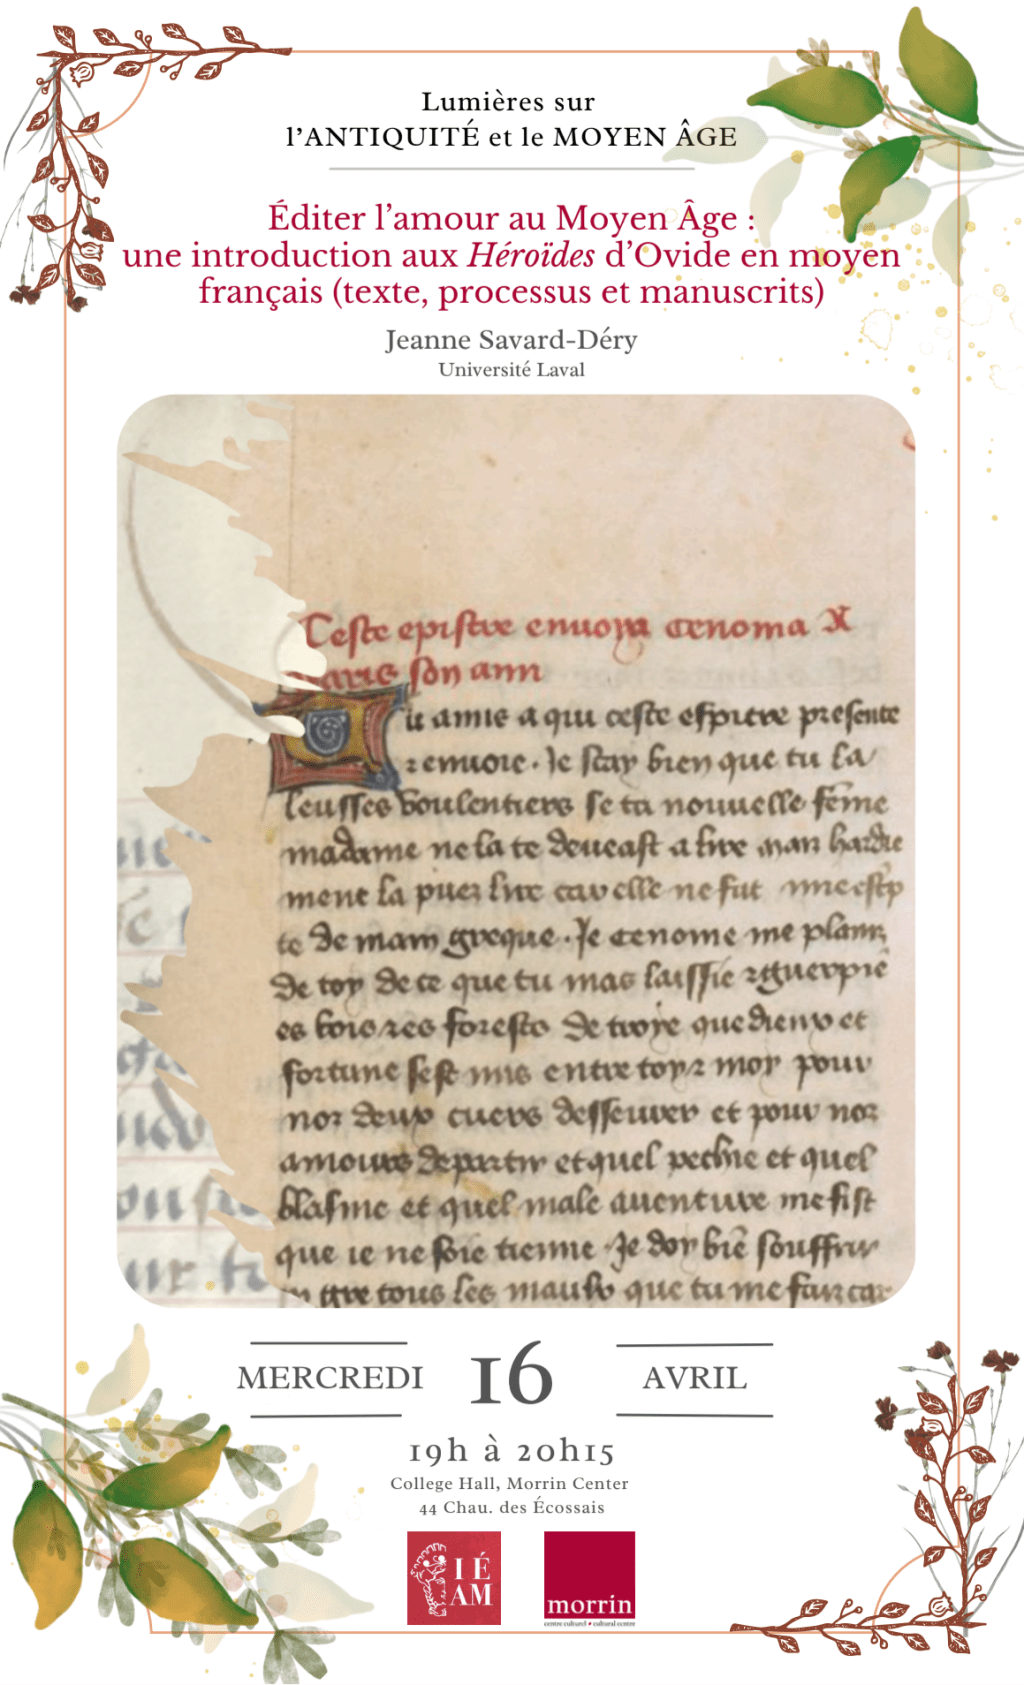 Lumières sur
l'ANTIQUITÉ et le MOYEN ÂGE
Éditer l'amour au Moyen Âge :
une introduction aux Héroïdes d'Ovide en moyen
français (texte, processus et manuscrits)
Jeanne Savard-Déry
Université Laval
Ceste epistre enuoya cenoma
paris son ami
amie a qui ceste espitre presente
enuoie. Je scay bien que tu la
leusses voulentiers se ta nouuelle feme
madame ne la te deueast a lire man hardie
mene la puez lire car elle ne fut
te de main greque. Je cenome me plaing
de toy de ce que tu mas laissie guerpie
es bois forests de troye que dieux et
fortune sest mis entre toy moy pour
noz deux cuers desseurer et pour noz
amours departir et quel pechie et quel
blasme et quel male auenture me fist
que ie ne soie tienne Je doy bie souffrir
gre tous les maulx que tu me fais car
MERCREDI 16 AVRIL
19h à 20h15
College Hall, Morrin Center
44 Chau. des Écossais
IÉ
AM
morrin
centre culturel • cultural centre